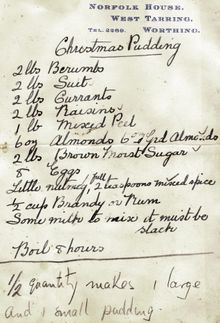 NORFOLK HOUSE,
WEST TARRING,
TEL. 2269. WORTHING.
Christmas Pudding
2 lbs Bcrumbs
2 lbs Suit
2 lbs Currants
2 lbs Raisins
1 lb Mixed Peel
6 oz Almonds 6 oz Grd Almonds
2 lbs Brown Moist Sugar
8 Eggs
Little nutmeg, 2 teaspoons mixed spice
½ cup Brandy or Rum
Some milk to mix it must be
slack
Boil 8 hours
½ quantity makes 1 large
and 1 small pudding.